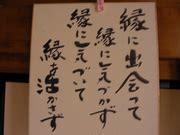 縁に出会って
縁に気づかず
縁に気づいて
縁を活かさず